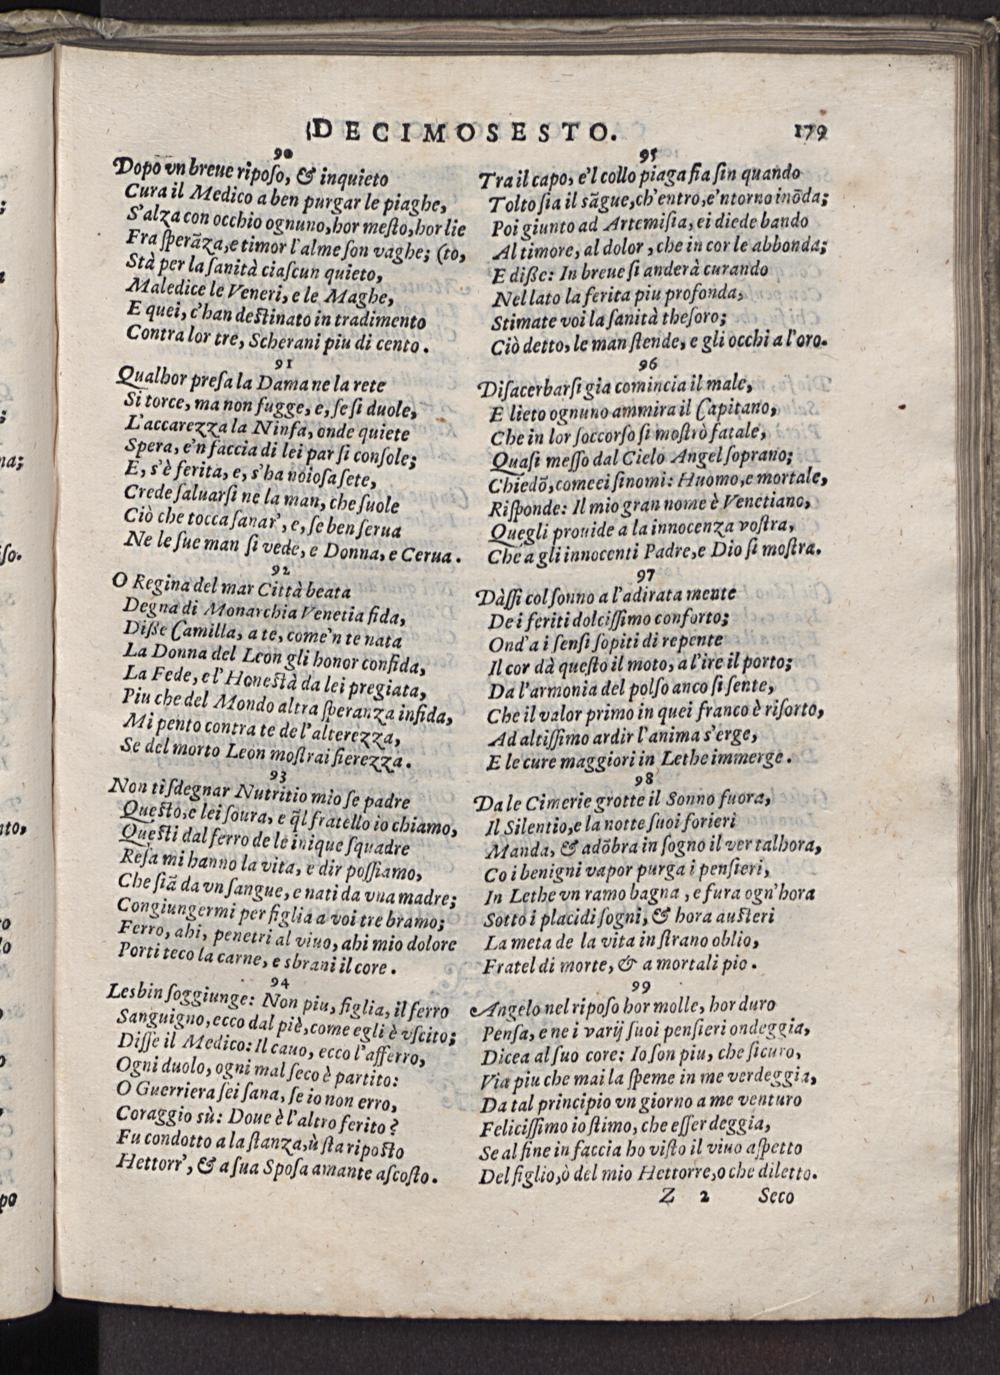 DECIMOSESTO. 179
90
Dopò vn breue ripoſo, & inquieto
Cura il Medico a ben purgar le piaghe,
S'alza con occhio ognuno, hor meſto, hor lie
Fra ſperãza, e timor l'alme ſon vaghe; (to,
Stà per la ſanità ciaſcun quieto,
Maledice le Veneri, e le Maghe,
E quei, c'han deſtinato in tradimento
Contra lor tre, Scherani piu di cento.
91
Qualhor preſa la Dama ne la rete
Si torce, ma non fugge, e, ſe ſi duole,
L'accarezza la Ninfa, onde quiete
Spera, e'n faccia di lei par ſi conſole;
E, s'è ferita, e, s'ha noioſa ſete,
Crede ſaluarſi ne la man, che ſuole
Ciò che tocca ſanar', e, ſe ben ſerua
Ne le ſue man ſi vede, e Donna, e Cerua.
92
O Regina del mar Città beata
Degna di Monarchia Venetia fida,
Diſſe Camilla, a te, come'n te nata
La Donna del Leon gli honor confida,
La Fede, e l'Honeſtà da lei pregiata,
Piu che del Mondo altra ſperanza infida,
Mi pento contra te de l'alterezza,
Se del morto Leon moſtrai fierezza.
93
Non ti ſdegnar Nutritio mio ſe padre
Queſto, e lei ſoura, e q̃l fratello io chiamo,
Queſti dal ferro de le inique ſquadre
Reſa mi hanno la vita, e dir poſſiamo,
Che ſiã da vn ſangue, e nati da vna madre;
Congiungermi per figlia a voi tre bramo;
Ferro, ahi, penetri al viuo, ahi mio dolore
Porti teco la carne, e sbrani il core.
94
Lesbin ſoggiunge: Non piu, figlia, il ferro
Sanguigno, ecco dal piè, come egli è vſcito;
Diſſe il Medico: Il cauo, ecco l'afferro,
Ogni duolo, ogni mal ſeco è partito:
O Guerriera ſei ſana, ſe io non erro,
Coraggio sù: Doue è l'altro ferito?
Fu condotto a la ſtanza, ù ſta ripoſto
Hettorr', & a ſua Spoſa amante aſcoſto.
95
Tra il capo, e'l collo piaga ſia ſin quando
Tolto ſia il sãgue, ch'entro, e'ntorno inõda;
Poi giunto ad Artemiſia, ei diede bando
Al timore, al dolor, che in cor le abbonda;
E diſſe: In breue ſi anderà curando
Nel lato la ferita piu profonda,
Stimate voi la ſanità theſoro;
Ciò detto, le man ſtende, e gli occhi a l'oro.
96
Diſacerbarſi gia comincia il male,
E lieto ognuno ammira il Capitano,
Che in lor ſoccorſo ſi moſtrò fatale,
Quaſi meſſo dal Cielo Angel ſoprano;
Chiedõ, come ei ſi nomi: Huomo, e mortale,
Riſponde: Il mio gran nome è Venetiano,
Quegli prouide a la innocenza voſtra,
Che a gli innocenti Padre, e Dio ſi moſtra.
97
Dàſſi col ſonno a l'adirata mente
De i feriti dolciſſimo conforto;
Ond'a i ſenſi ſopiti di repente
Il cor dà queſto il moto, a l'ire il porto;
Da l'armonia del polſo anco ſi ſente,
Che il valor primo in quei franco è riſorto,
Ad altiſſimo ardir l'anima s'erge,
E le cure maggiori in Lethe immerge.
98
Da le Cimerie grotte il Sonno fuora,
Il Silentio, e la notte ſuoi forieri
Manda, & adõbra in ſogno il ver talhora,
Co i benigni vapor purga i penſieri,
In Lethe vn ramo bagna, e fura ogn'hora
Sotto i placidi ſogni, & hora auſteri
La meta de la vita in ſtrano oblio,
Fratel di morte, & a mortali pio.
99
Angelo nel ripoſo hor molle, hor duro
Penſa, e ne i varij ſuoi penſieri ondeggia,
Dicea al ſuo core: Io ſon piu, che ſicuro,
Via piu che mai la ſpeme in me verdeggia,
Da tal principio vn giorno a me venturo
Feliciſſimo io ſtimo, che eſſer deggia,
Se al fine in faccia ho viſto il viuo aſpetto
Del figlio, ò del mio Hettorre, o che diletto.
Z 2 Seco